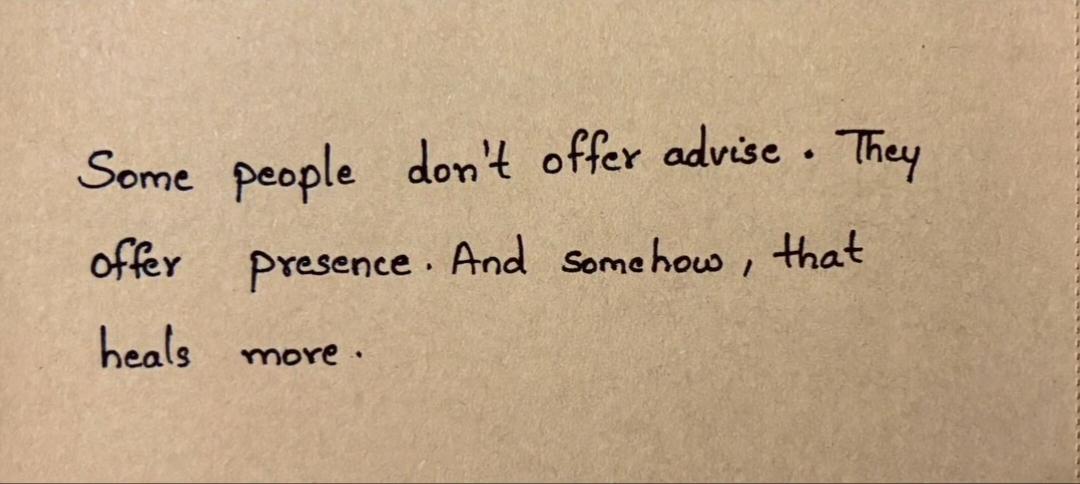 Some people don't offer advise. They
offer presence. And somehow, that
heals more.